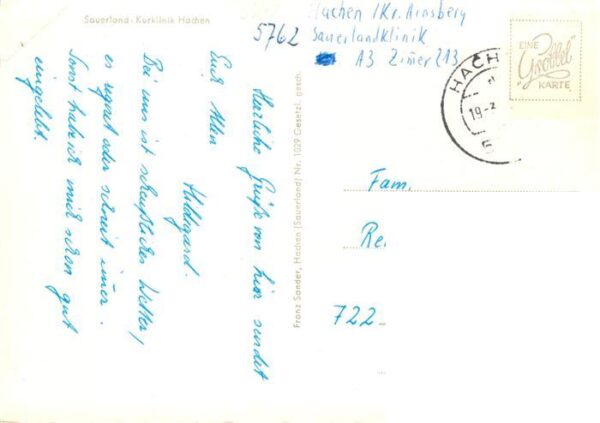 Sauerland-Kurklinik Hachen
5762 Hachen / Kr. Arnsberg
Sauerlandklinik
A3 Zimer 213
Herzliche Grüße von hier sendet
Euch Allen
Hildegard.
Bei uns ist scheußliches Wetter,
es regnet oder schneit imer.
Sonst habe ich mich schon gut
eingelebt.
Franz Sander, Hachen (Sauerland) Nr. 1029 Gesetzl. gesch.
HACH
19.-
5
EINE
"Groebbel"
KARTE
Fam.
Re.
722